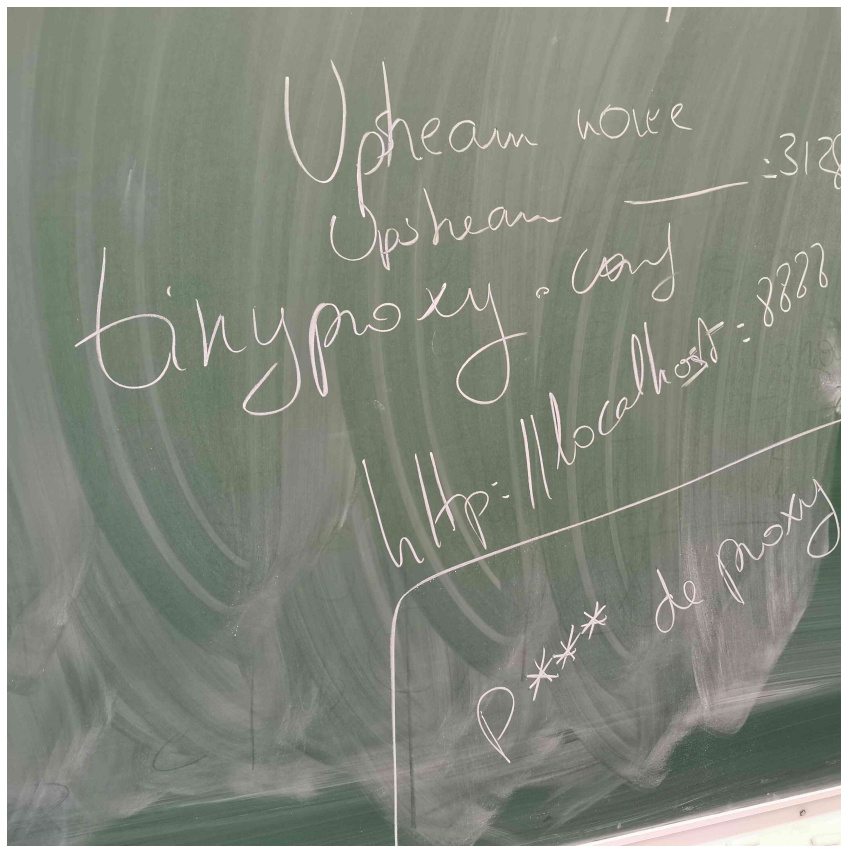 Upstream none
Upstream ____ :3128
tinyproxy.conf
http://localhost:8888
P*** de proxy